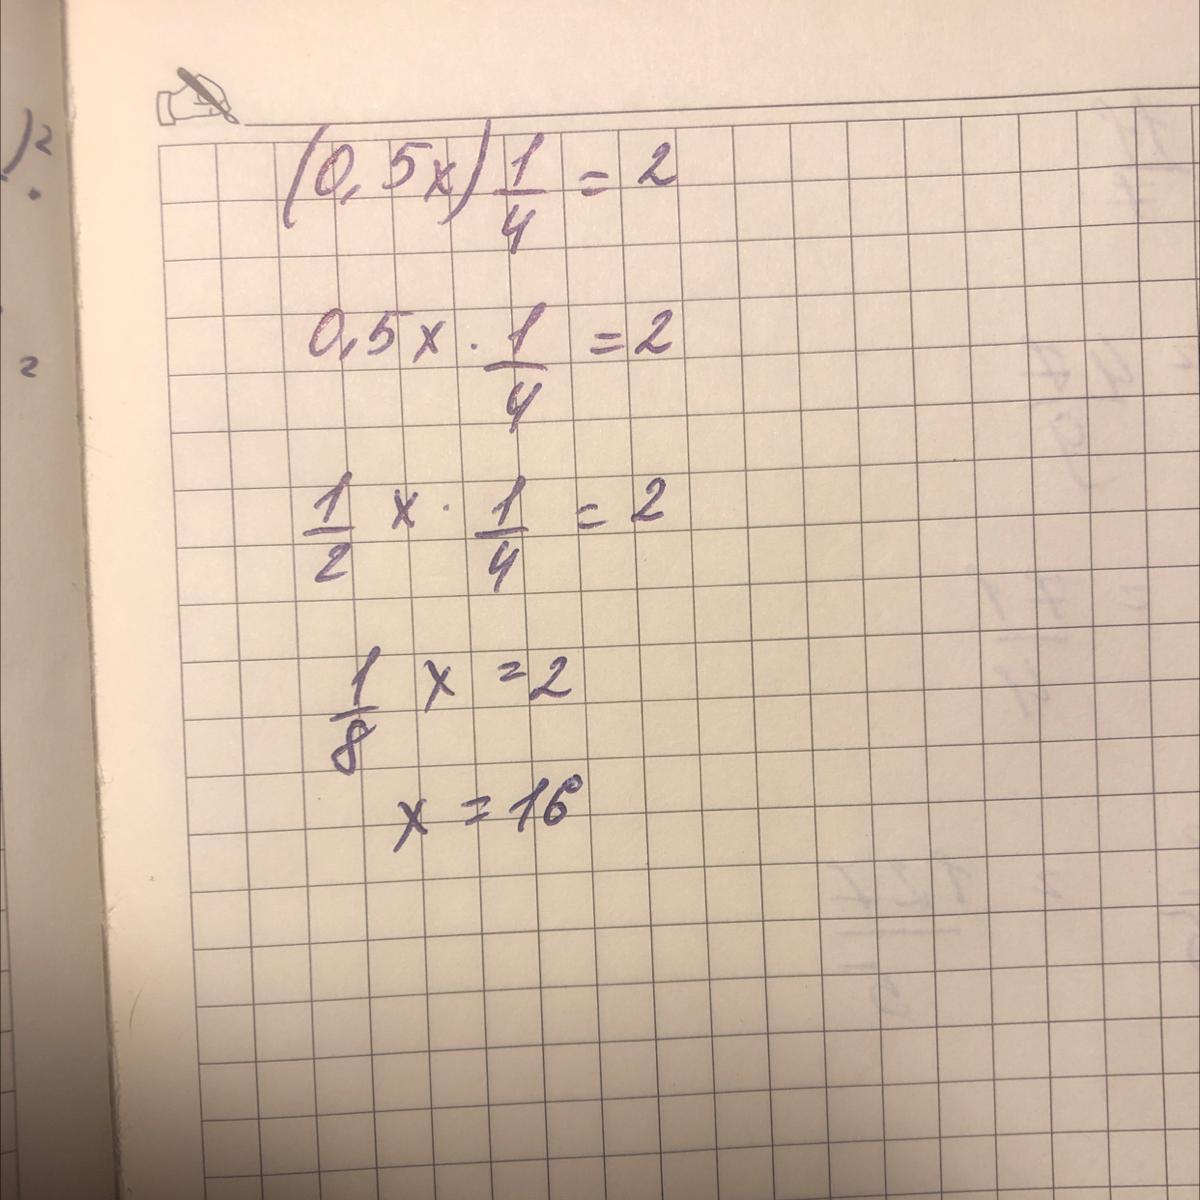 (0,5x) 1/4 = 2
0,5x · 1/4 = 2
1/2 x · 1/4 = 2
1/8 x = 2
x = 16